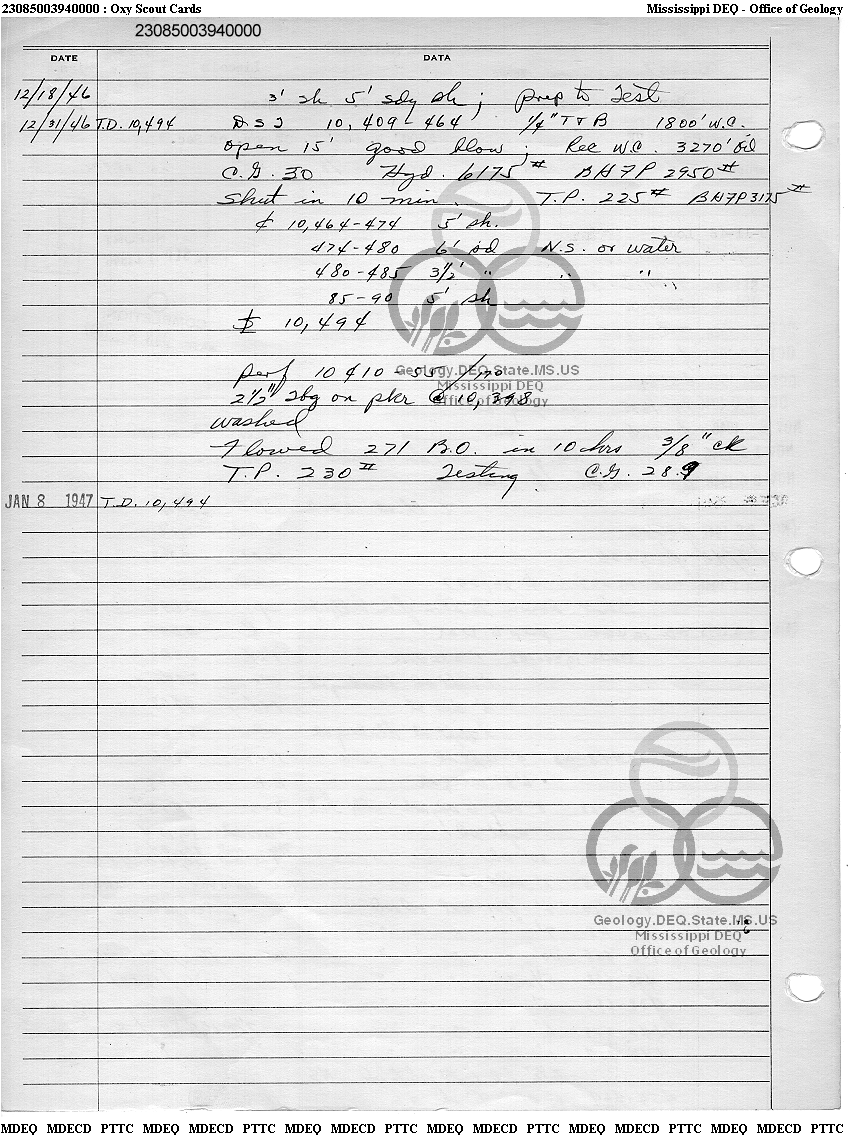 23085003940000 : Oxy Scout Cards Mississippi DEQ - Office of Geology
23085003940000
DATE DATA
12/18/46 3' sh 5' sdy sh ; prep to Test
12/31/46 T.D. 10,494 DST 10,409-464 1/4" T & B 1800' W.C.
open 15' good blow ; Rec W.C. 3270' Oil
C.G. 30 Hyd. 6175# BHFP 2950#
Shut in 10 min. T.P. 225# BHFP 3175#
¢ 10,464-474 5' sh.
474-480 6' sd N.S. or water
480-485 3 1/2' " " "
85-90 5' sh
10,494
perf 10410-55
2 1/2" Tbg on pkr @ 10,398
washed
Flowed 271 B.O. in 10 hrs 3/8" ck
T.P. 230# Testing C.G. 28.9
JAN 8 1947 T.D. 10,494
Geology.DEQ.State.MS.US
Mississippi DEQ
Office of Geology
Geology.DEQ.State.MS.US
Mississippi DEQ
Office of Geology
MDEQ MDECD PTTC MDEQ MDECD PTTC MDEQ MDECD PTTC MDEQ MDECD PTTC MDEQ MDECD PTTC MDEQ MDECD PTTC